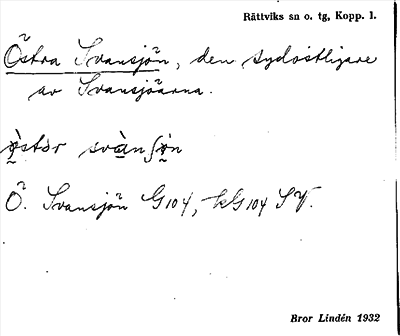 Rättviks sn o. tg, Kopp. l.
Östra Svansjön, den sydostligare
av Svansjöarna.
ø̀stər svànʃø̀n
Ö. Svansjön G104, kG104 SV.
Bror Lindén 1932